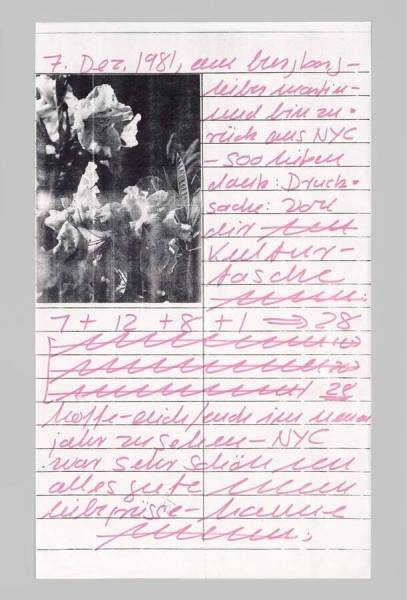 7. Dez. 1981, am burgberg-
lieber martin-
und bin zu-
rück aus NYC
- 500 lieben
dank: Druck-
sache: von
dir
Kultur-
tasche
7 + 12 + 8 + 1 => 28
28
hoffe-dich/euch im neuen
jahr zu sehen - NYC
war sehr schön
alles gute
liebe grüsse - hanne